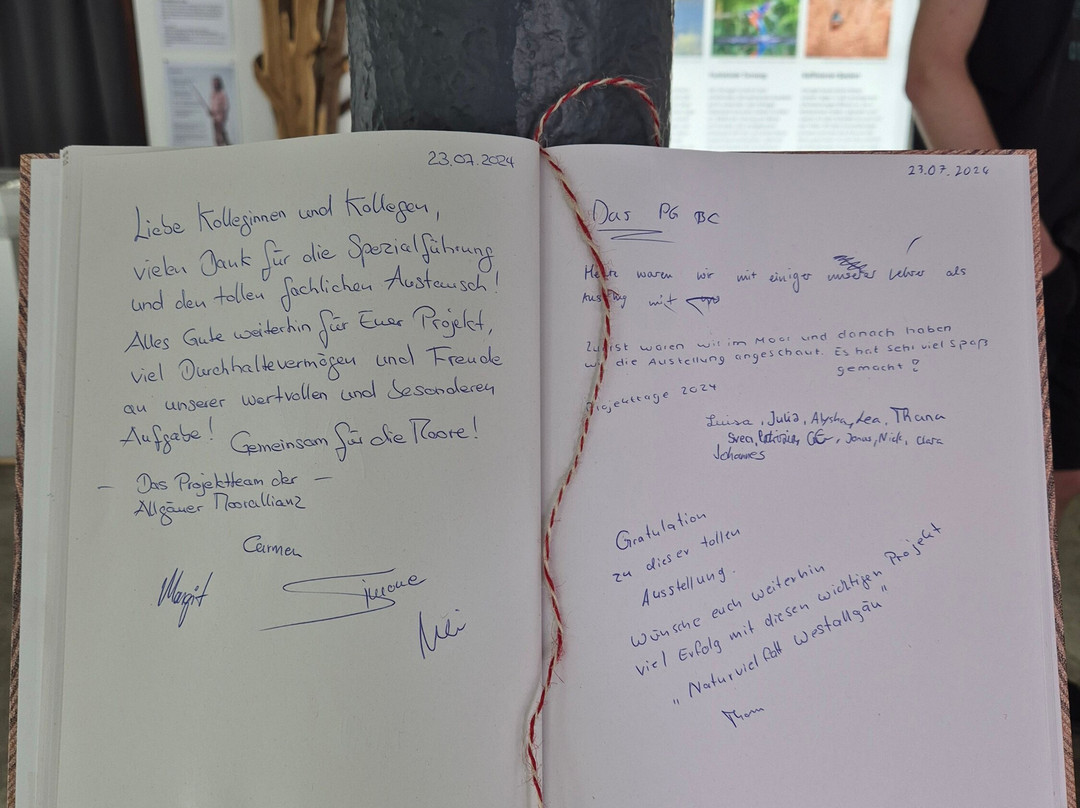 23.07.2024
Liebe Kolleginnen und Kollegen,
vielen Dank für die Spezialführung
und den tollen fachlichen Austausch!
Alles Gute weiterhin für Euer Projekt,
viel Durchhaltevermögen und Freude
an unserer wertvollen und besonderen
Aufgabe! Gemeinsam für die Moore!
- Das Projektteam der -
Allgäuer Moorallianz
Carmen
Margit Simone
23.07.2024
Das PG BC
Heute waren wir mit einiger Lehrer als
Ausflug mit
Zuerst waren wir im Moor und danach haben
wir die Austellung angeschaut. Es hat sehr viel Spaß
gemacht!
Projekttage 2024
Luisa, Julia, Alysha, Lea, Thana
Sven, Jonas, Nick, Clara
Johannes
Gratulation
zu dieser tollen
Ausstellung.
Wünsche euch weiterhin
viel Erfolg mit diesen wichtigen Projekt
„Naturvielfalt Westallgäu"